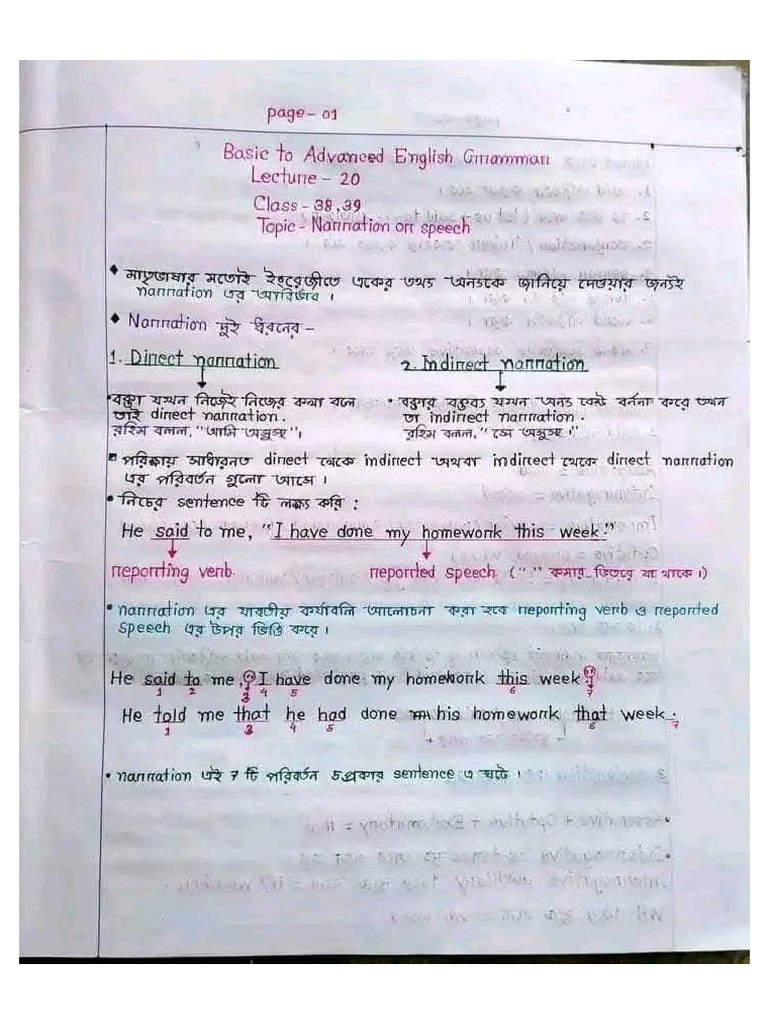 page-01
Basic to Advanced English Grammar
Lecture - 20
Class - 38,39
Topic - Narration or speech
◆ মাতৃভাষার মতোই ইংরেজীতে একের তথ্য অন্যকে জানিয়ে দেওয়ার জন্যই
narration এর আবির্ভাব।
◆ Narration দুই ধরনের-
1. Direct narration 2. Indirect narration
• বক্তা যখন নিজেই নিজের কথা বলে • বক্তার বক্তব্য যখন অন্য কেউ বর্ননা করে তখন
তাই direct narration. তা indirect narration.
রহিম বলল, "আমি অসুস্থ।" রহিম বলল, "সে অসুস্থ।"
▪ পরিক্ষায় সাধারনত direct থেকে indirect অথবা indirect থেকে direct narration
এর পরিবর্তন গুলো আসে।
• নিচের sentence টি লক্ষ্য করি:
He said to me, "I have done my homework this week."
reporting verb reported speech (" " কমার ভিতরে যা থাকে।)
• narration এর যাবতীয় কার্যাবলি আলোচনা করা হবে reporting verb ও reported
speech এর উপর ভিত্তি করে।
He said to me, "I have done my homework this week."
1 2 3 4 5 6 7
He told me that he had done his homework that week.
1 3 4 5 6 7
• narration এই 7 টি পরিবর্তন 5 প্রকার sentence এ ঘটে।